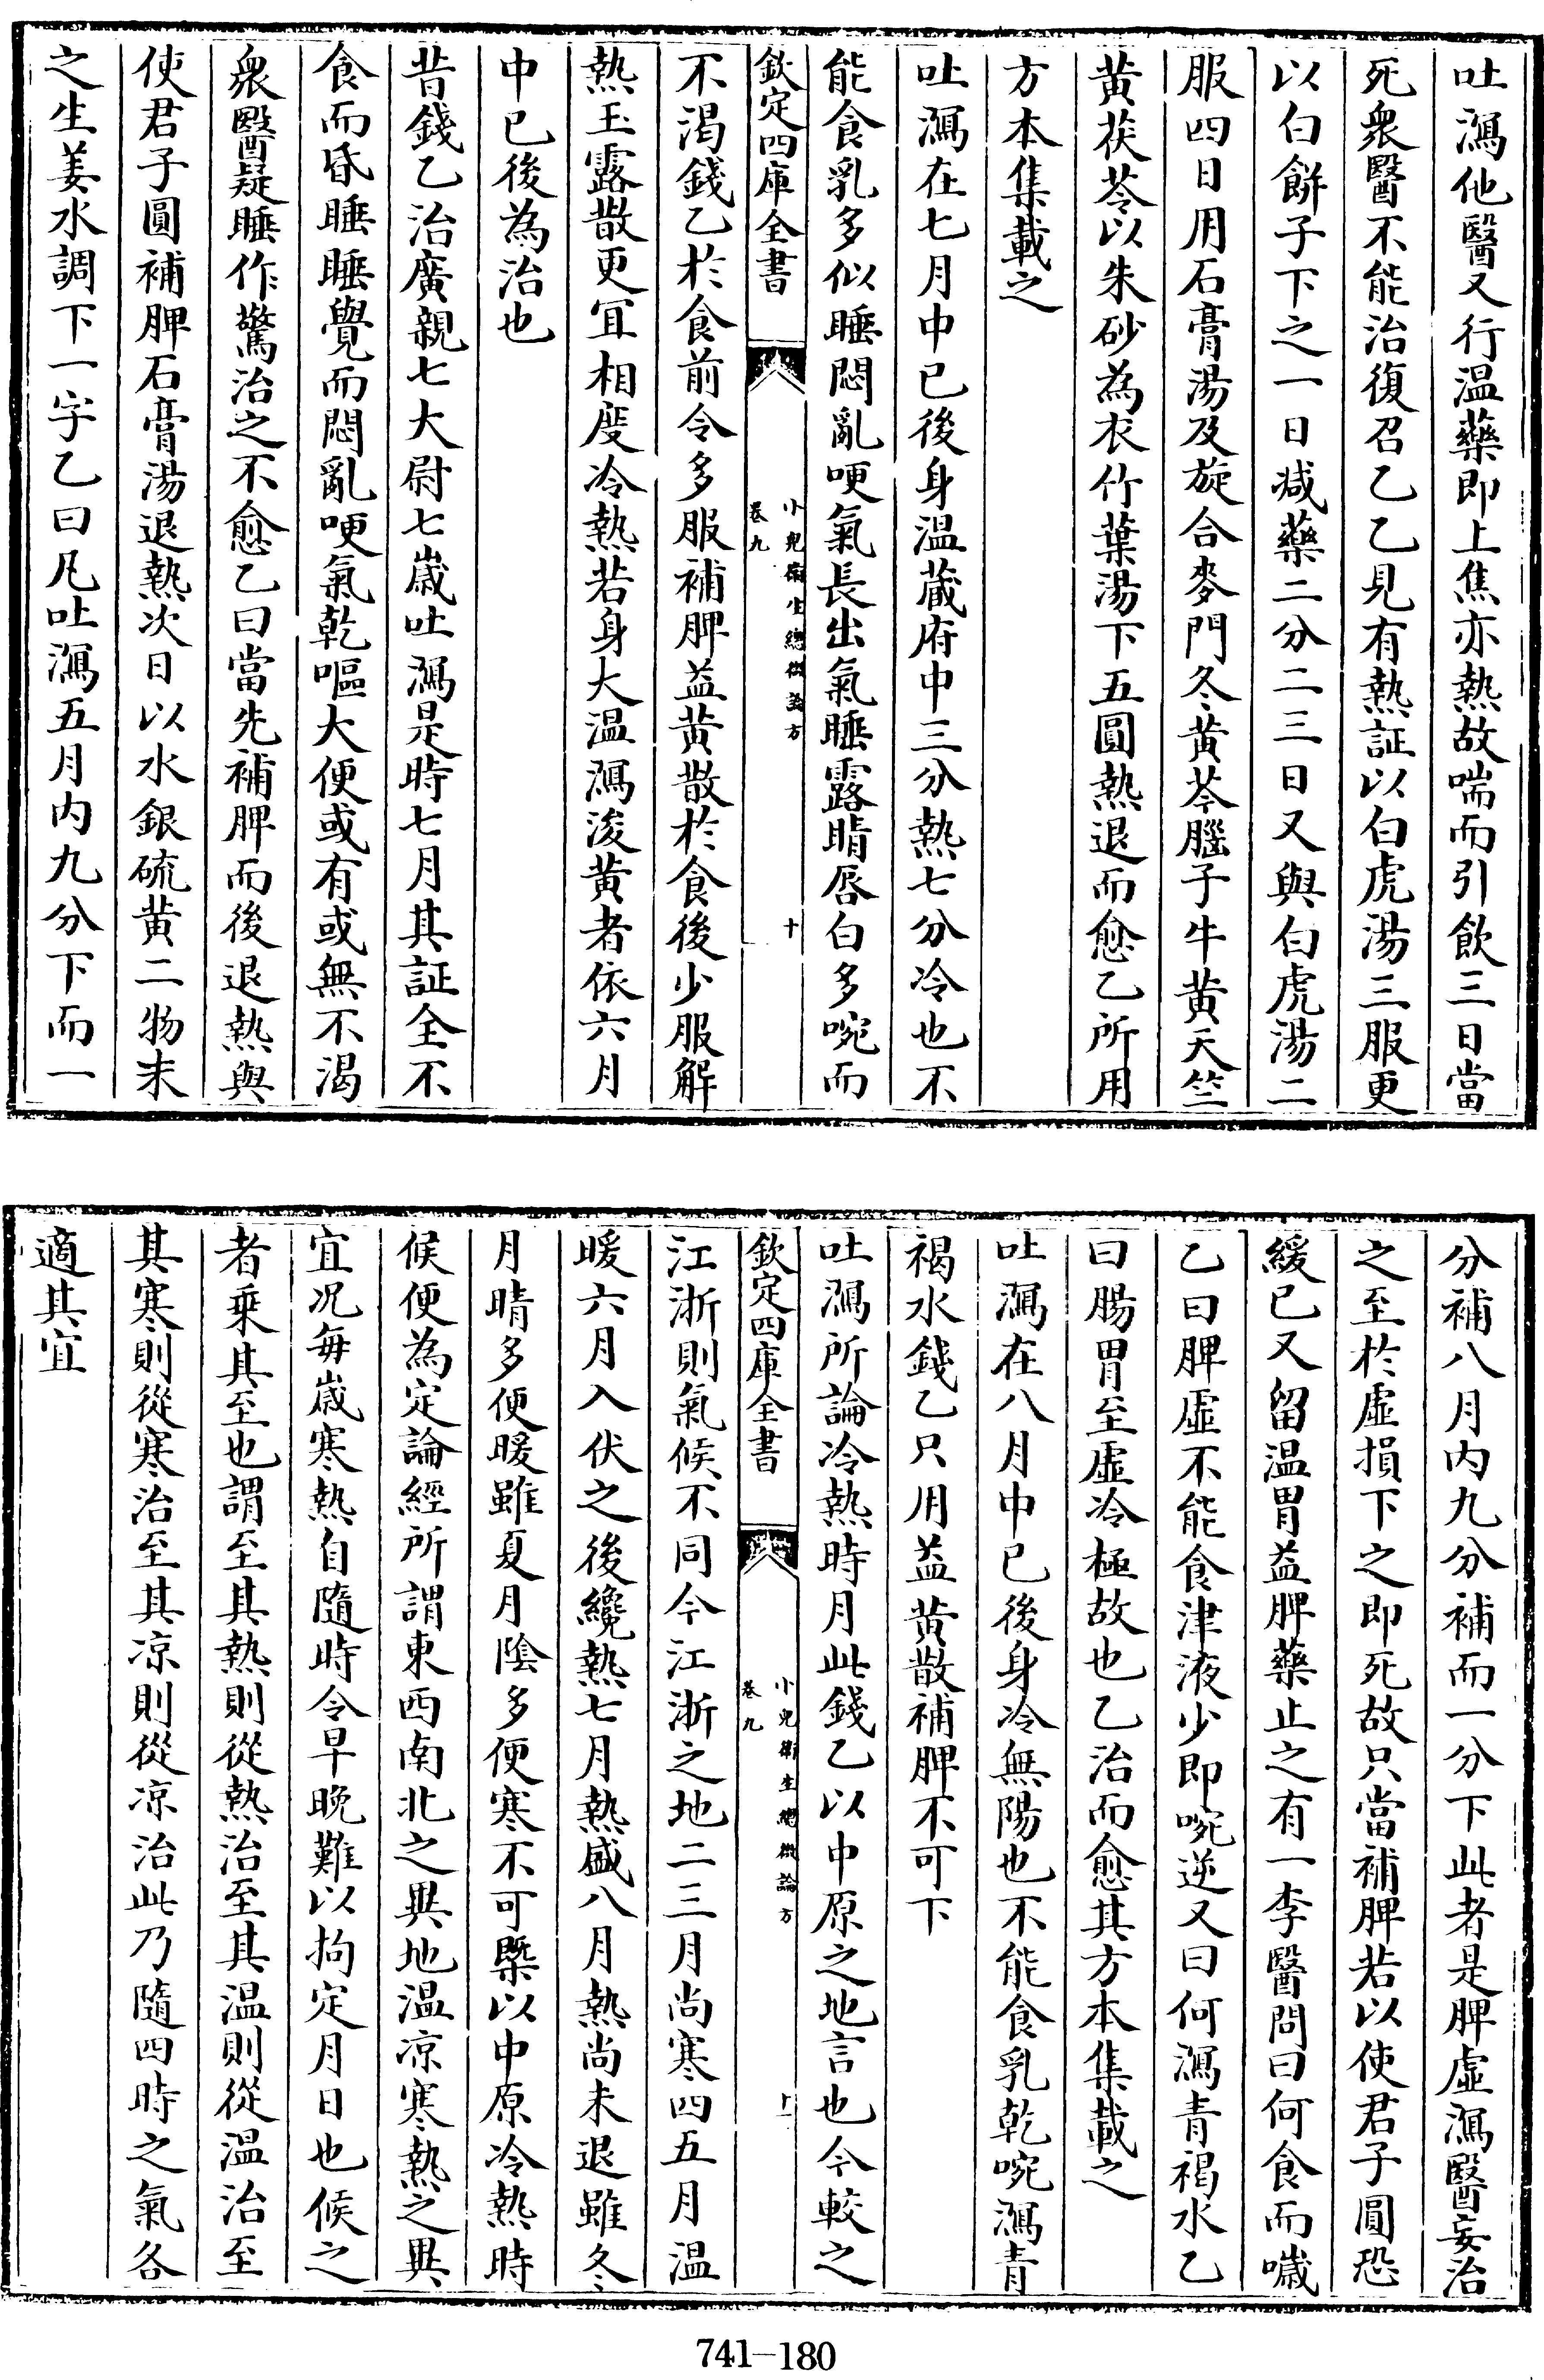 吐瀉他醫又行温藥即上焦亦熱故喘而引飲三日當
死衆醫不能治復召乙乙見有熱証以白虎湯三服更
以白餅子下之一日減藥二分二三日又與白虎湯二
服四日用石膏湯及旋合麥門冬黄芩腦子牛黄天竺
黄茯苓以朱砂為衣竹葉湯下五圓熱退而愈乙所用
方本集載之
吐瀉在七月中已後身温藏府中三分熱七分冷也不
能食乳多似睡悶亂哽氣長出氣睡露睛唇白多啘而
欽定四庫全書
小兒衛生總微論方
卷九
十
不渴錢乙於食前令多服補脾益黄散於食後少服解
熱玉露散更宜相度冷熱若身大温瀉浚黄者依六月
中已後為治也
昔錢乙治廣親七大尉七嵗吐瀉是時七月其証全不
食而昏睡睡覺而悶亂哽氣乾嘔大便或有或無不渴
衆醫疑睡作驚治之不愈乙曰當先補脾而後退熱與
使君子圓補脾石膏湯退熱次日以水銀硫黄二物末
之生姜水調下一字乙曰凡吐瀉五月内九分下而一
分補八月内九分補而一分下此者是脾虛瀉醫妄治
之至於虛損下之即死故只當補脾若以使君子圓恐
緩已又留温胃益脾藥止之有一李醫問曰何食而噦
乙曰脾虛不能食津液少即啘逆又曰何瀉青褐水乙
曰腸胃至虛冷極故也乙治而愈其方本集載之
吐瀉在八月中已後身冷無陽也不能食乳乾啘瀉青
褐水錢乙只用益黄散補脾不可下
吐瀉所論冷熱時月此錢乙以中原之地言也今較之
欽定四庫全書
小兒衛生總微論方
卷九
十一
江浙則氣候不同今江浙之地二三月尚寒四五月温
暖六月入伏之後纔熱七月熱盛八月熱尚未退雖冬
月晴多便暖雖夏月陰多便寒不可槩以中原冷熱時
候便為定論經所謂東西南北之異地温凉寒熱之異
宜况毎嵗寒熱自隨時令早晚難以拘定月日也候之
者乗其至也謂至其熱則從熱治至其温則從温治至
其寒則從寒治至其凉則從凉治此乃隨四時之氣各
適其宜
741-180